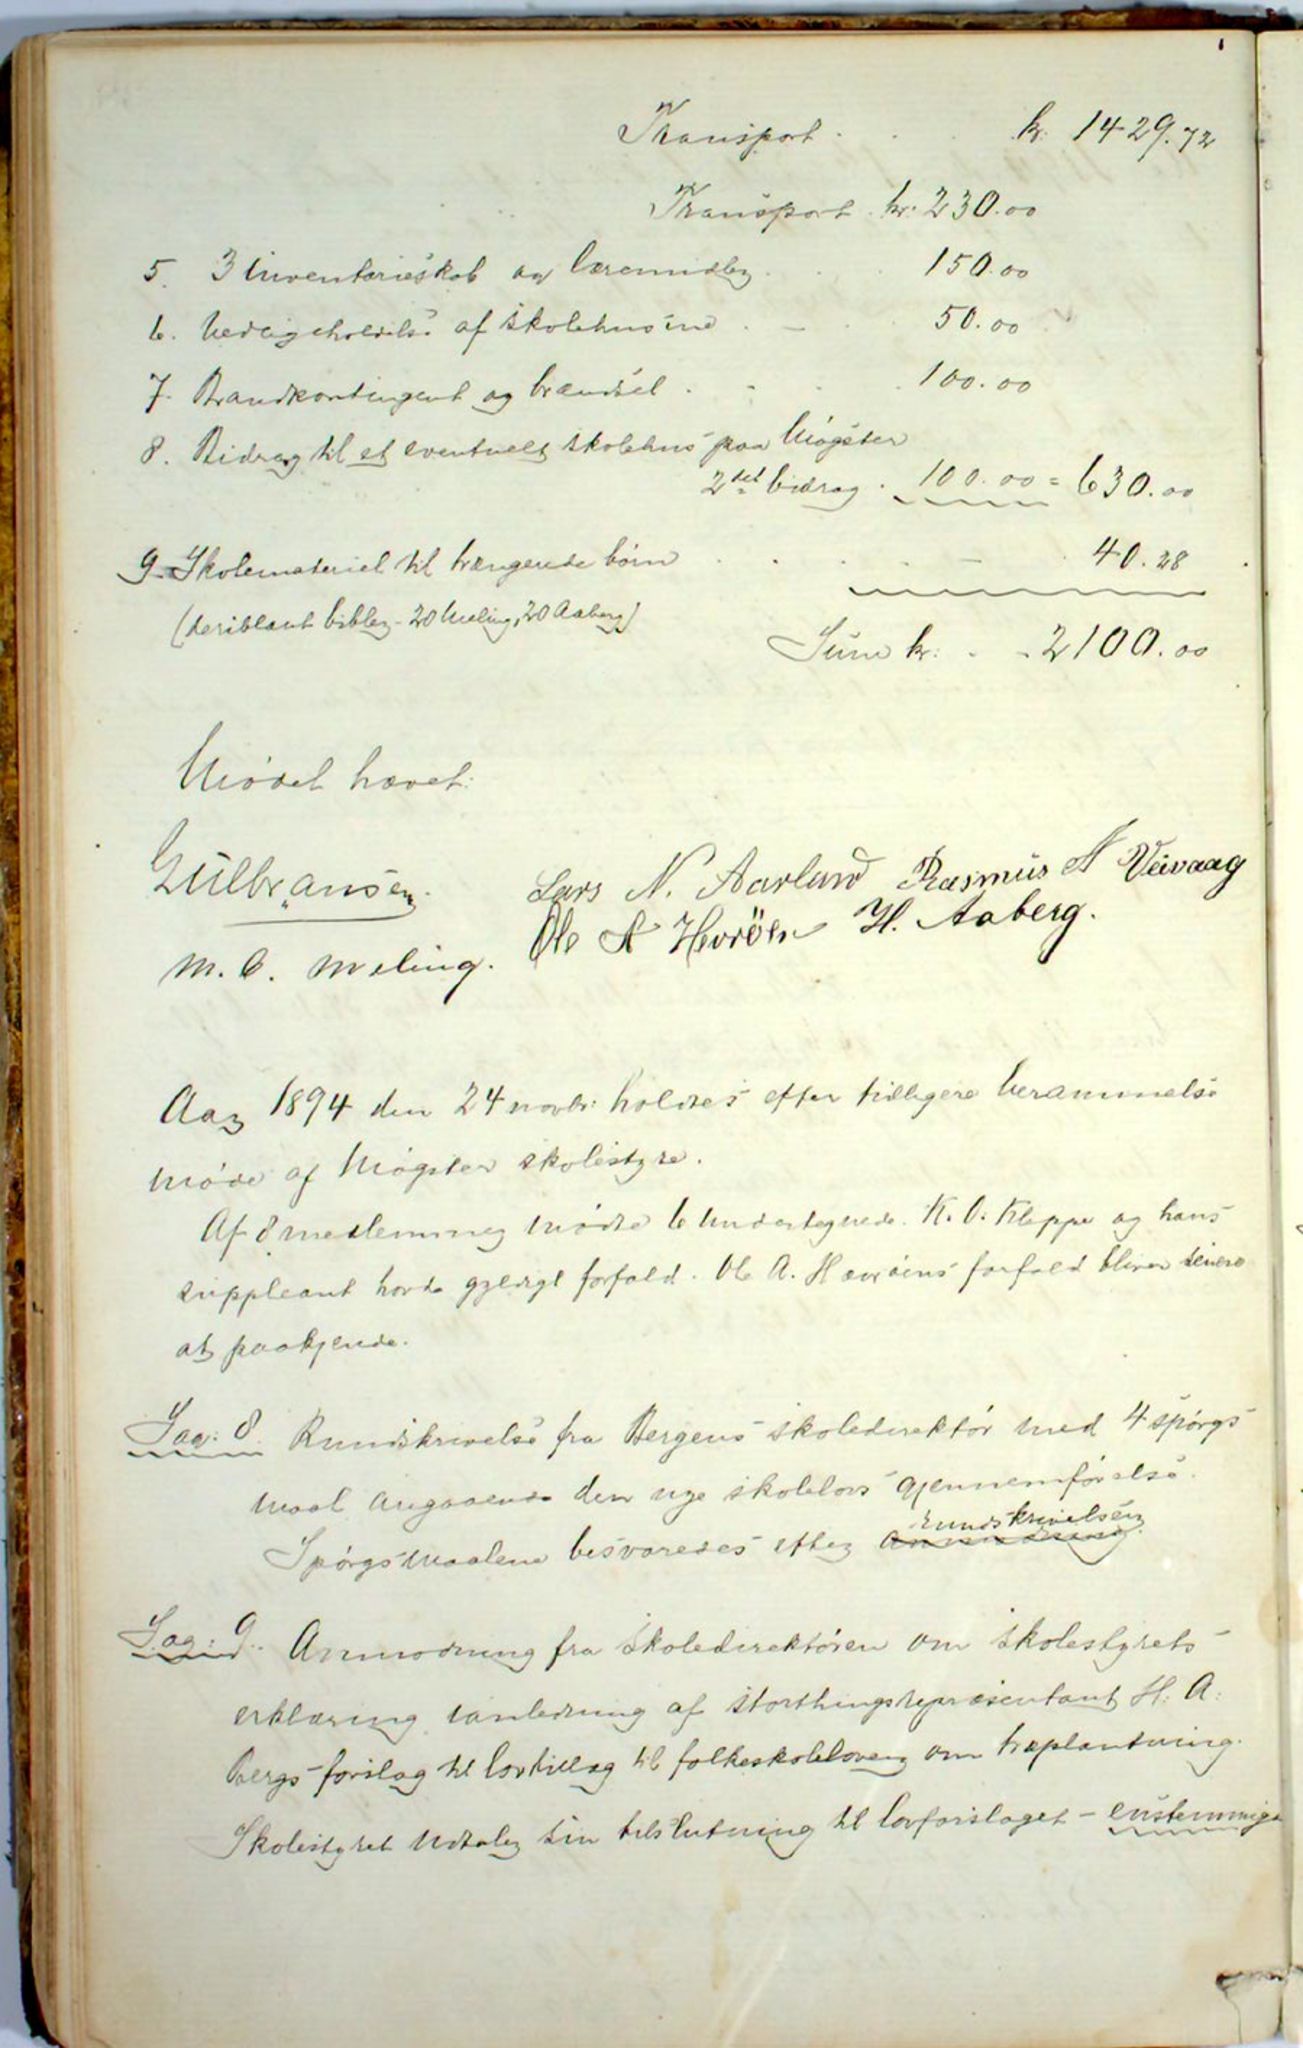 Transport . . . kr. 1429.72
Transport . kr: 230.00
5. 3 inventarieskab og læremidler . . . 150.00
6. Vedligeholdelse af skolehusene . - . 50.00
7. Brandkontingent og brændsel . - . . 100.00
8. Bidrag til et eventuelt skolehus paa Møgster
2det bidrag . 100.00 = 630.00
9. Skolemateriel til trængende børn . . . - 40.28
(deriblant bibler - 20 Meling, 20 Aaberg)
Sum kr: . . 2100.00
Mødet hævet.
Gulbransen. Lars N. Aarland Rasmus A Veivaag
M. O. Meling. Ole A Hevrøen H. Aaberg.
Aar 1894 den 24 novbr: holdtes efter tidligere berammelse
møde af Møgster skolestyre.
Af 8 medlemmer mødte 6 undertegnede. K. O. Kleppe og hans
suppleant havde gyldigt forfald. Ole A. Hævrøens forfald bliver senere
at paakjende.
Sag: 8. Rundskrivelse fra Bergens skoledirektør med 4 spørgs
maal angaaende den nye skolelovs gjennemførelse.
rundskrivelsen
Spørgsmaalene besvaredes efter
Sag: 9. Anmodning fra skoledirektøren om skolestyrets
erklæring i anledning af storthingsrepræsentant H. A.
Bergs forslag til lovtillæg til folkeskoleloven om træplantning.
Skolestyret udtaler sin tilslutning til lovforslaget - enstemmig